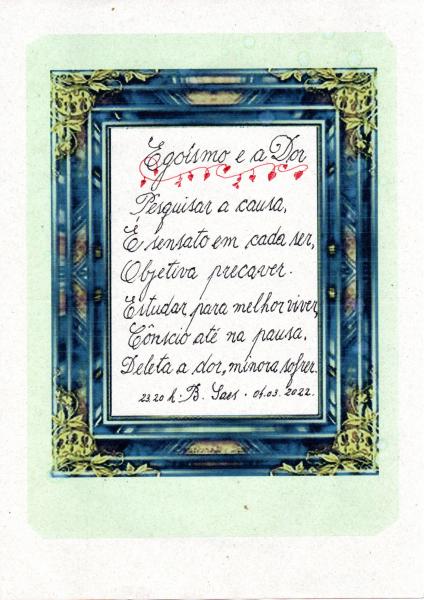 Egoísmo e a Dor
Pesquisar a causa,
É sensato em cada ser,
Objetiva precaver.
Estudar, para melhor viver,
Cônscio até na pausa,
Deleta a dor, minora sofrer.
23.20 h. B. Saes. 01.03.2022.